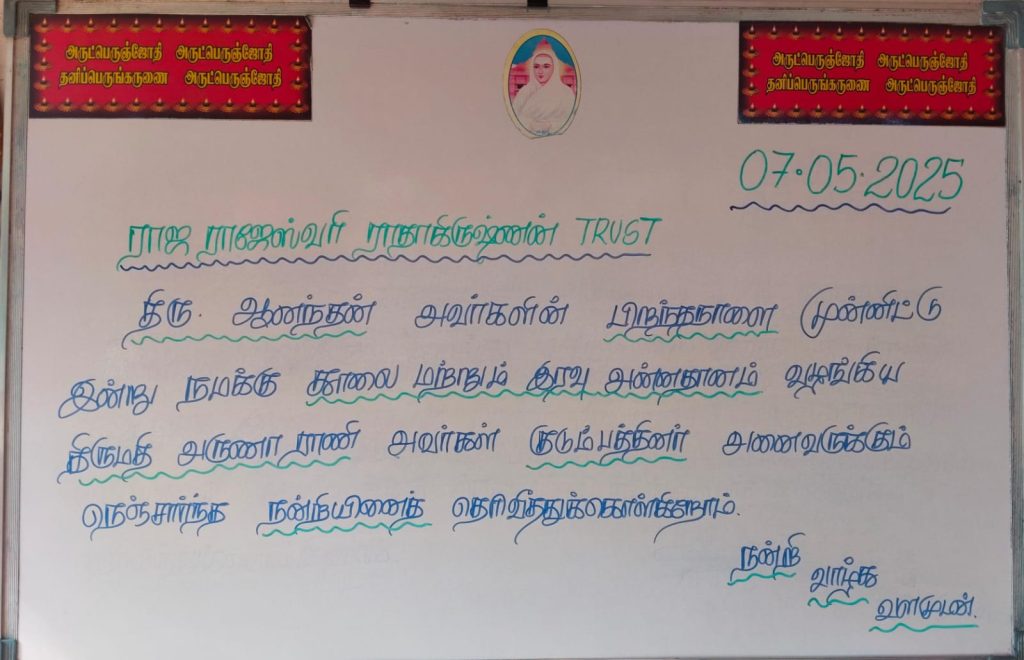 அருட்பெருஞ்ஜோதி அருட்பெருஞ்ஜோதி
தனிப்பெருங்கருணை அருட்பெருஞ்ஜோதி
அருட்பெருஞ்ஜோதி அருட்பெருஞ்ஜோதி
தனிப்பெருங்கருணை அருட்பெருஞ்ஜோதி
07.05.2025
ராஜ ராஜேஸ்வரி ராதாகிருஷ்ணன் TRUST
திரு. ஆனந்தன் அவர்களின் பிறந்தநாளை முன்னிட்டு
இன்று நமக்கு காலை மற்றும் இரவு அன்னதானம் வழங்கிய
திருமதி அருணா ராணி அவர்கள் குடும்பத்தினர் அனைவருக்கும்
நெஞ்சார்ந்த நன்றியினைத் தெரிவித்துக்கொள்கிறோம்.
நன்றி
வாழ்க
வளமுடன்.